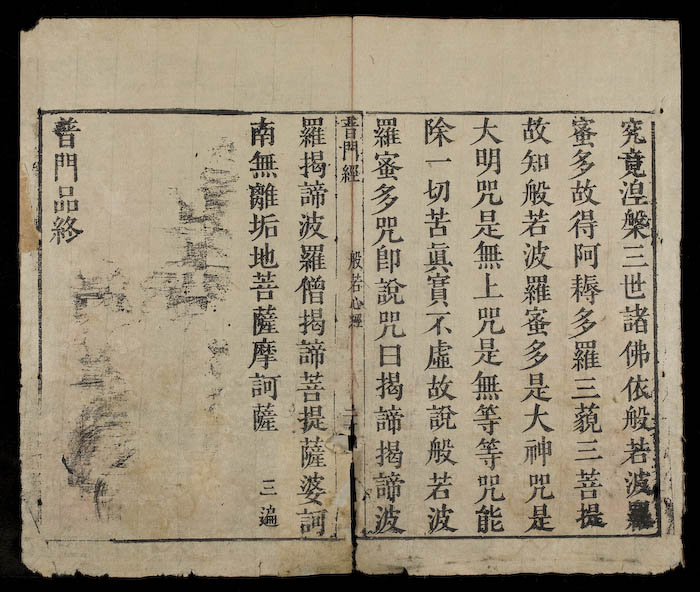 究竟湼槃三世諸佛依般若波羅
蜜多故得阿耨多羅三藐三菩提
故知般若波羅蜜多是大神咒是
大明咒是無上咒是無等等咒能
除一切苦眞實不虛故說般若波
羅蜜多咒卽說咒曰揭諦揭諦波
普門經 般若心經
羅揭諦波羅僧揭諦菩提薩婆訶
南無離垢地菩薩摩訶薩 三遍
普門品終